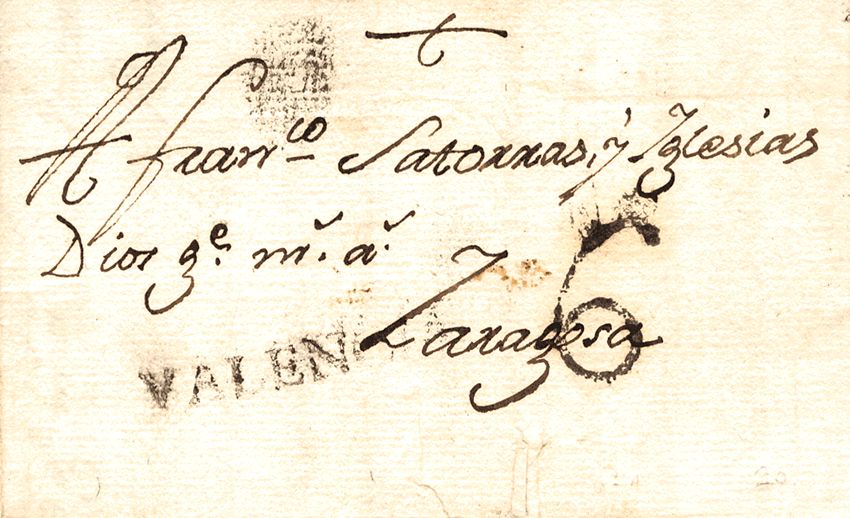 A Fran.co Satorras, y Yglesias
Dios g.e m.s a.s
Zaragosa
VALENCIA
6